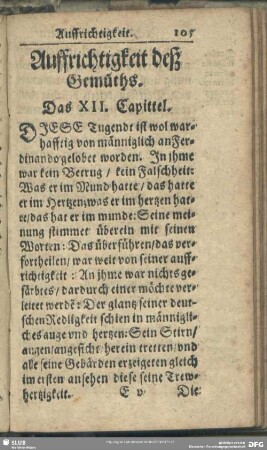 Auffrichtigkeit. 105
Auffrichtigkeit deß
Gemüths.
Das XII. Capittel.
DJESE Tugendt ist wol war-
hafftig von männiglich an Fer-
dinando gelobet worden. Jn jhme
war kein Betrug / kein Falschheit:
Was er im Mund hatte / das hatte
er im Hertzen; was er im hertzen hat-
te / das hat er im munde: Seine mei-
nung stimmet überein mit seinen
Worten: Das überführen / das ver-
fortheilen / war weit von seiner auff-
richtigkeit: An jhme war nichts ge-
färbtes / dardurch einer möchte ver-
leitet werdē: Der glantz seiner deut-
schen Redligkeit schien in männigli-
ches auge vnd hertzen: Sein Stirn /
augen / angesicht / herein tretten / vnd
alle seine Gebärden erzeigeten gleich
im ersten ansehen diese seine Trew-
hertzigkeit. E v Die
SLUB
DFG